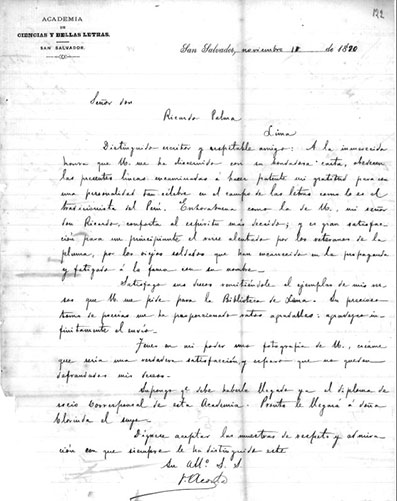 122
ACADEMIA
DE
CIENCIAS Y BELLAS LETRAS.
SAN SALVADOR.
San Salvador, noviembre 18 de 1890
Señor don
Ricardo Palma
Lima
Distinguido escritor y respetable amigo: A la inmerecida
honra que U. me ha discernido con su bondadosa carta, obedecen
las presentes líneas encaminadas á hacer patente mi gratitud para con
una personalidad tan célebre en el campo de las letras como lo es el
tradicionista del Perú. Enhorabuena como la de U., mi señor
don Ricardo, conforta al espíritu más decaido; y es gran satisfac-
ción para un principiante el verse alentado por los veteranos de la
pluma, por los viejos soldados que han encanecido en la propaganda
y fatigado á la fama con su nombre.
Satisfago sus deseos remitiéndole el ejemplar de mis ver-
sos que U. me pide para la Biblioteca de Lima. Su precioso
tomo de poesías me ha proporcionado ratos agradables: agradezco in-
finitamente el envío.
Tener en mi poder una fotografía de U., créame
que sería una verdadera satisfacción, y espero que no quedarán
defraudados mis deseos.
Supongo qe. debe haberle llegado ya el diploma de
socio corresponsal de esta Academia. Pronto le llegará á doña
Clorinda el suyo.
Dígnese aceptar las muestras de respeto y admira-
ción con que siempre le ha distinguido este
Su Affº. S. S.
V. Acosta